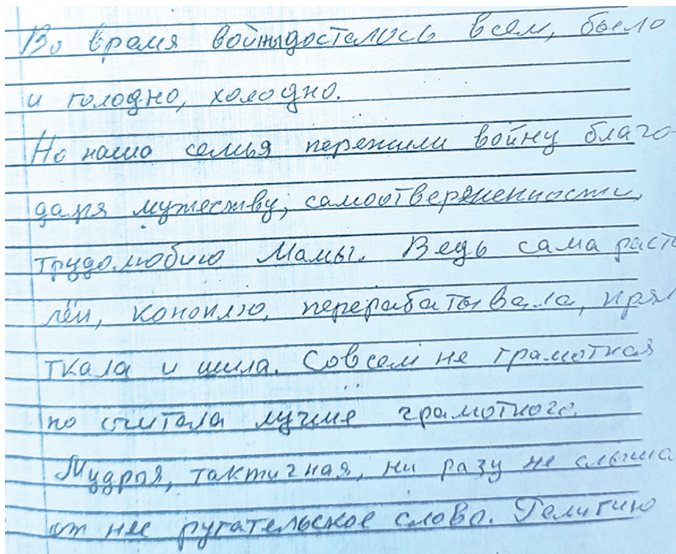 Во время войны досталось всем, было
и голодно, холодно.
Но наша семья пережили войну благо-
даря мужеству, самоотверженности,
трудолюбию Мамы. Ведь сама раст
лён, коноплю, перерабатывала, прял
ткала и шила. Совсем не грамотная
но считала лучше грамотного.
Мудрая, тактичная, ни разу не слыша
от нее ругательское слово. Религию